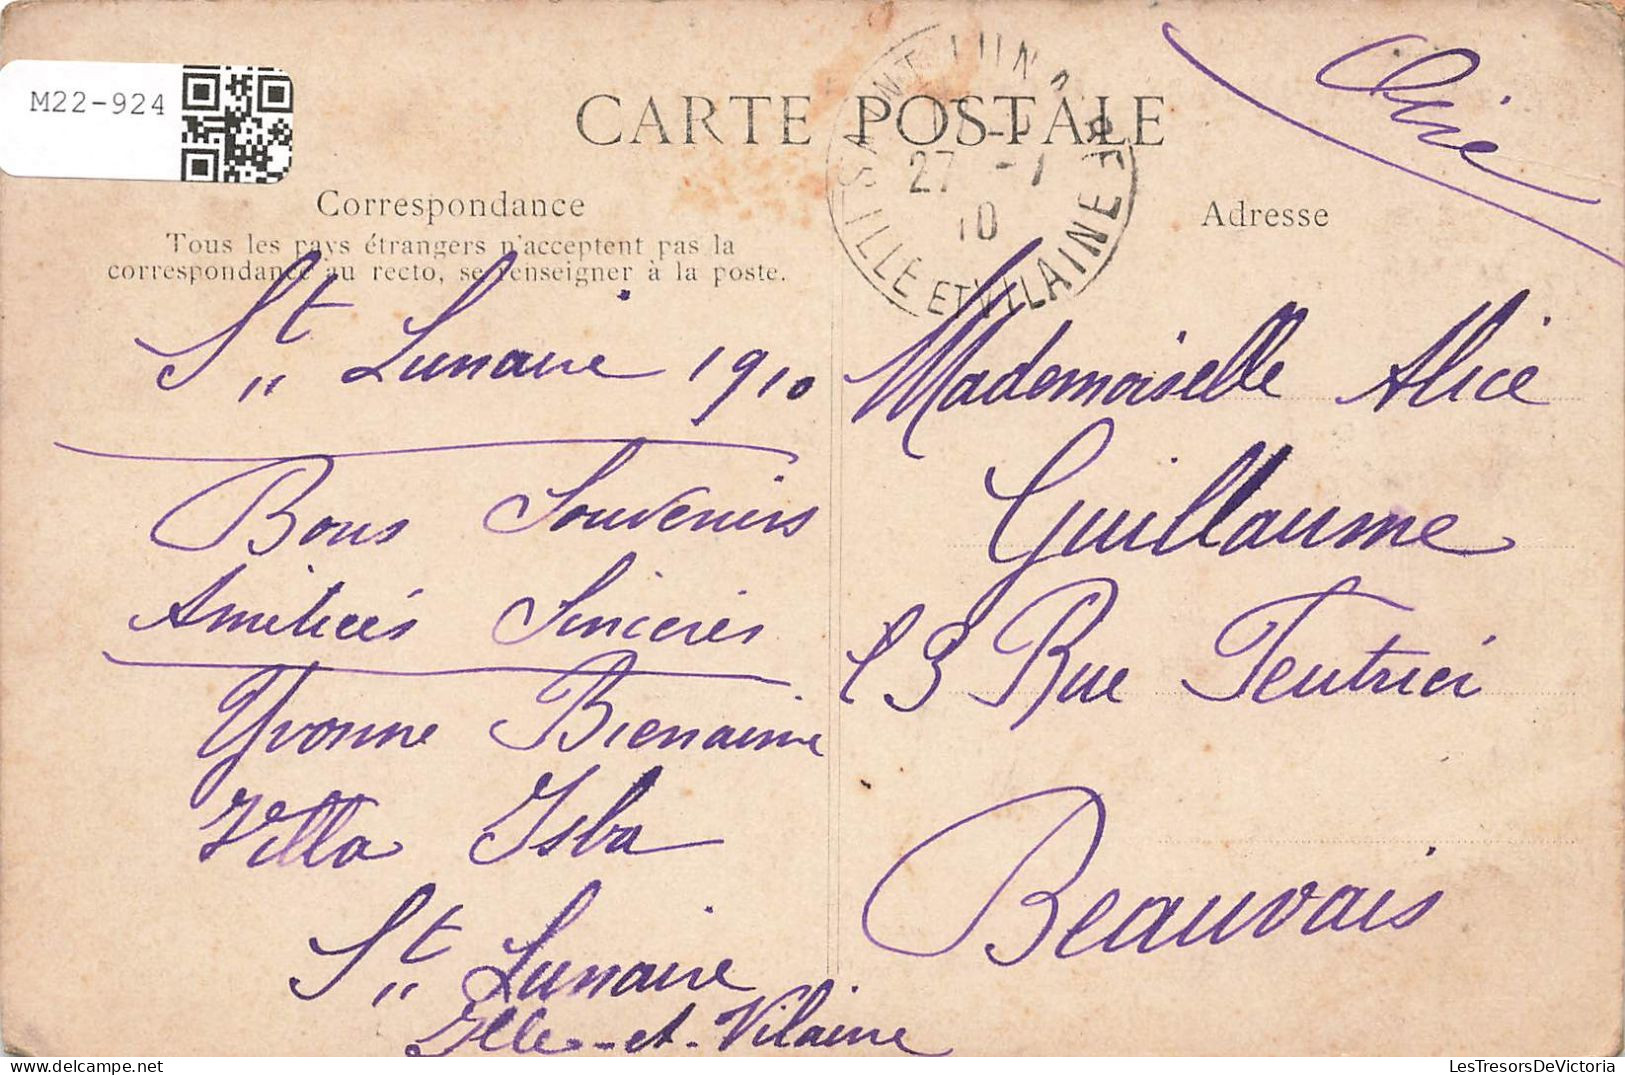 M22-924
CARTE POSTALE
SAINT LUNAIRE
27 -7
10
ILLE ET VILAINE
Correspondance
Tous les pays étrangers n'acceptent pas la
correspondance au recto, se renseigner à la poste.
Adresse
St Lunaire 1910
Bons Souvenirs
Amitiés Sincères
Yvonne Bienaimé
Villa Isba
St Lunaire
Ille-et-Vilaine
Mademoiselle Alice
Guillaume
13 Rue
Beauvais
LesTresorsDeVictoria